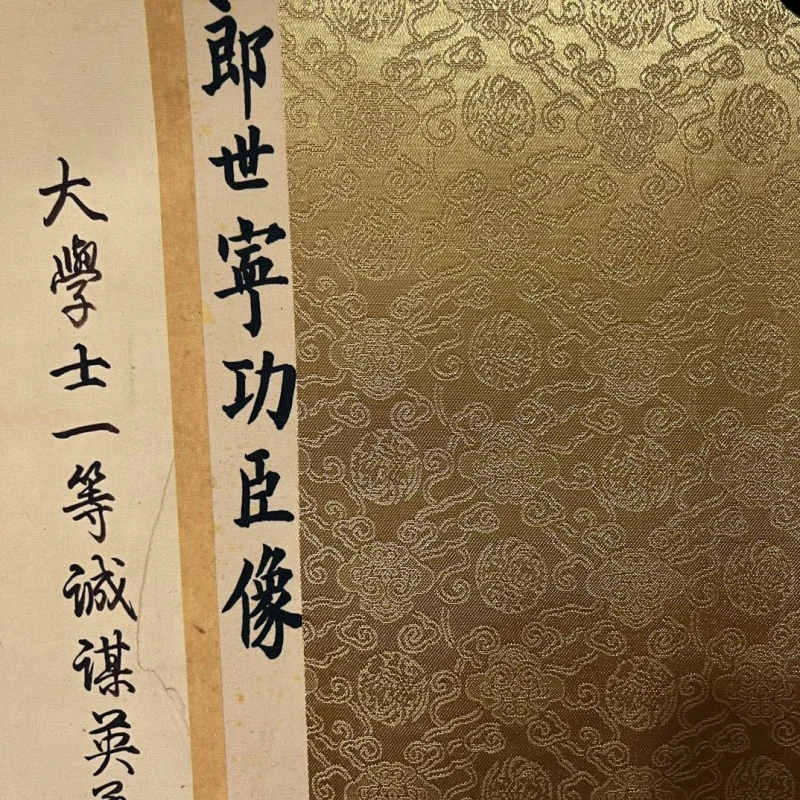 郎世寧功臣像
大學士一等誠謀英